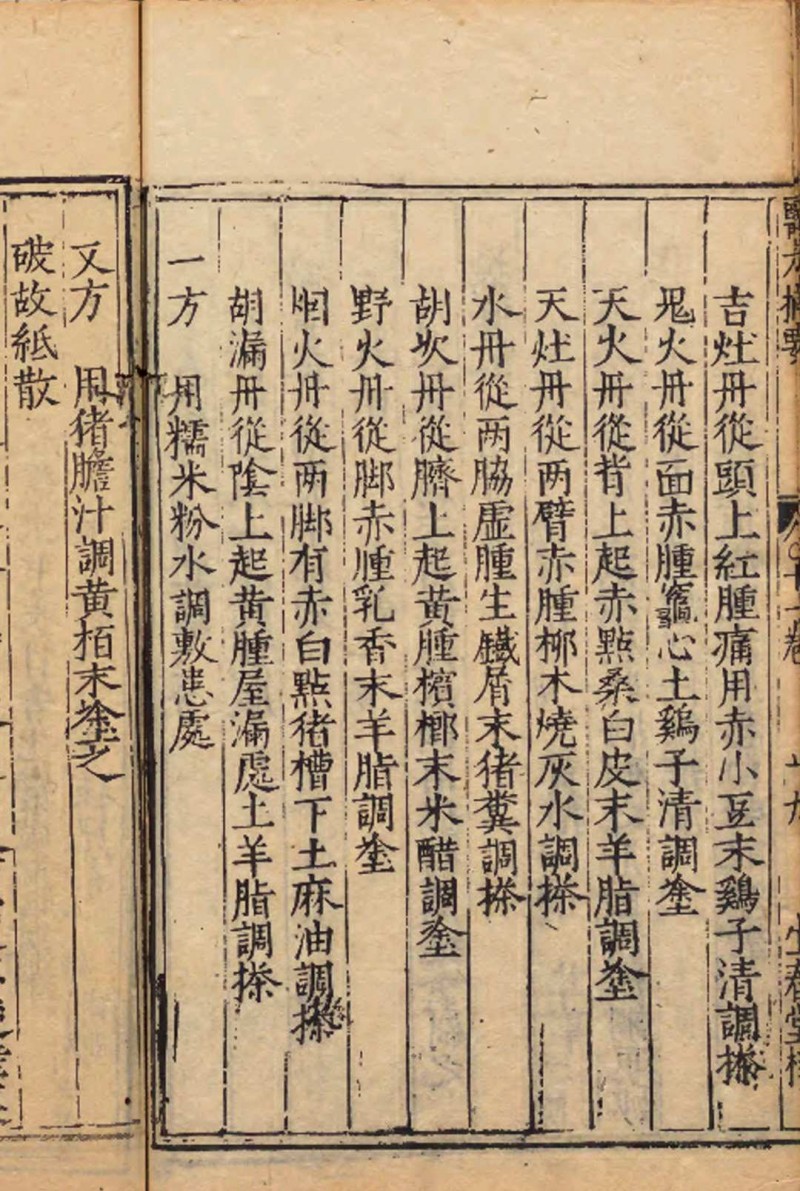 吉灶丹從頭上紅腫痛用赤小豆末鷄子清調搽
鬼火丹從面赤腫竈心土鷄子清調塗
天火丹從背上起赤點桑白皮末羊脂調塗
天灶丹從两臂赤腫柳木燒灰水調搽
水丹從两脇虛腫生鐵屑末猪糞調搽
胡吹丹從臍上起黄腫檳榔末米醋調塗
野火丹從脚赤腫乳香末羊脂調塗
烟火丹從两脚有赤白點猪槽下土麻油調搽
胡漏丹從陰上起黄腫屋漏處土羊脂調搽
一方 用糯米粉水調敷患處
又方 用猪膽汁調黄栢末塗之
破故紙散